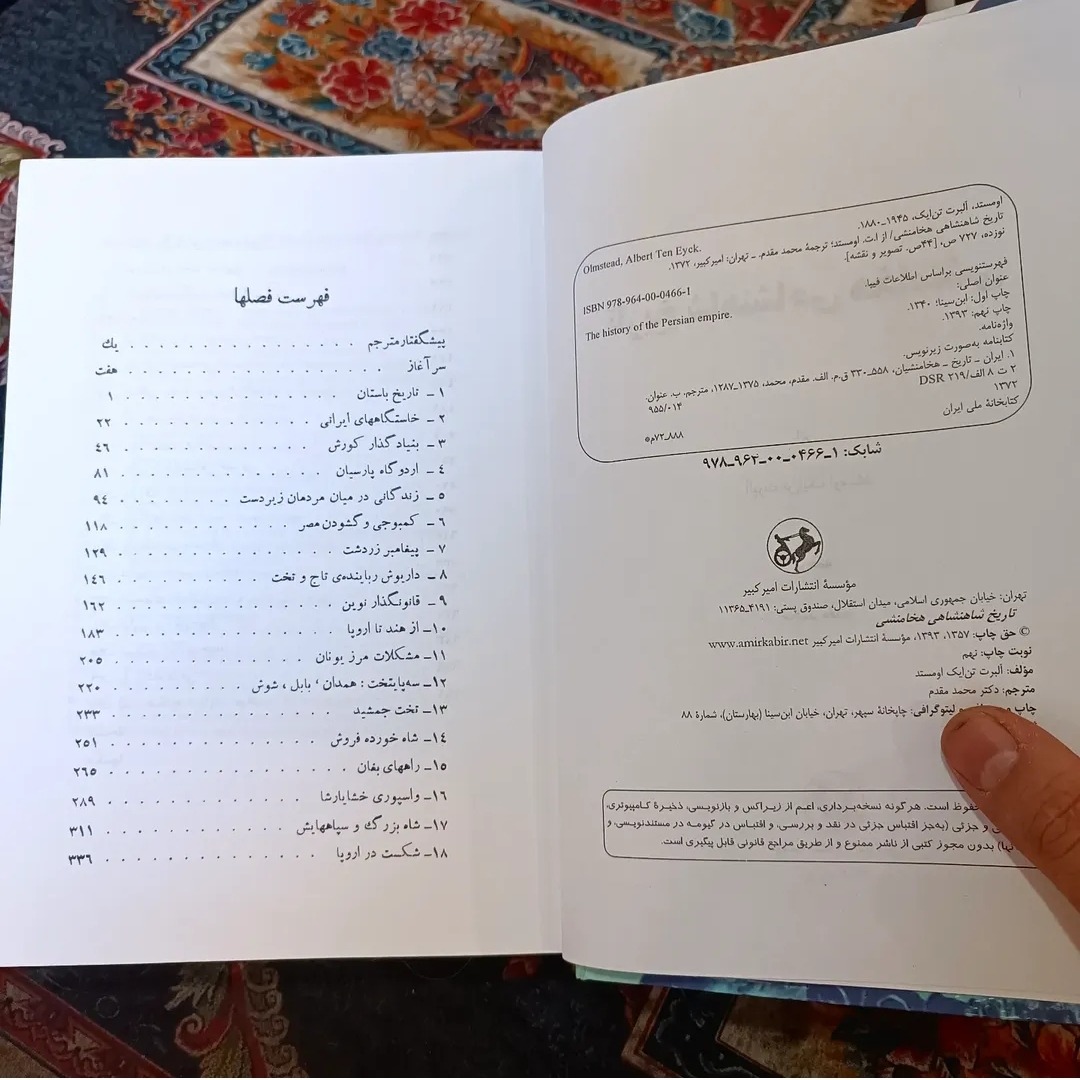 اومستد، آلبرت تن‌ایک، ۱۹۴۵ـ۱۸۸۰.
Olmstead, Albert Ten Eyck.
تاریخ شاهنشاهی هخامنشی/ از ا.ت. اومستد؛ ترجمهٔ محمد مقدم. ـ تهران: امیرکبیر، ۱۳۷۲.
نوزده، ۷۲۷ ص، [۴۴ص. تصویر و نقشه].
ISBN 978-964-00-0466-1
فهرستنویسی براساس اطلاعات فیپا.
عنوان اصلی:
The history of the Persian empire.
چاپ اول: ابن‌سینا؛ ۱۳۴۰.
چاپ نهم: ۱۳۹۳.
واژه‌نامه.
کتابنامه به‌صورت زیرنویس.
۱. ایران ـ تاریخ ـ هخامنشیان، ۵۵۸ـ۳۳۰ ق.م. الف. مقدم، محمد، ۱۳۷۵ـ۱۲۸۷، مترجم. ب. عنوان.
۲ ت ۸ الف/ DSR ۲۱۹
۹۵۵/۰۱۴
۱۳۷۲
کتابخانهٔ ملی ایران
۷۲ـ۸۸۸م*
شابک: ۱ـ۰۴۶۶ـ۰۰ـ۹۶۴ـ۹۷۸
مؤسسهٔ انتشارات امیرکبیر
تهران: خیابان جمهوری اسلامی، میدان استقلال، صندوق پستی: ۴۱۹۱ـ۱۱۳۶۵
تاریخ شاهنشاهی هخامنشی
© حق چاپ: ۱۳۵۷، ۱۳۹۳، مؤسسهٔ انتشارات امیرکبیر www.amirkabir.net
نوبت چاپ: نهم
مؤلف: آلبرت تن‌ایک اومستد
مترجم: دکتر محمد مقدم
چاپ لیتوگرافی: چاپخانهٔ سپهر، تهران، خیابان ابن‌سینا (بهارستان)، شمارهٔ ۸۸
است. هرگونه نسخه‌برداری، اعم از زیراکس و بازنویسی، ذخیرهٔ کامپیوتری،
و جزئی (به‌جز اقتباس جزئی در نقد و بررسی، و اقتباس در گیومه در مستندنویسی، و
بدون مجوز کتبی از ناشر ممنوع و از طریق مراجع قانونی قابل پیگیری است.
فهرست فصلها
پیشگفتار مترجم . . . . . . . . . . . . . . یك
سرآغاز . . . . . . . . . . . . . . هفت
۱ ـ تاریخ باستان . . . . . . . . . . . . . . ۱
۲ ـ خاستگاههای ایرانی . . . . . . . . . . . . ۲۲
۳ ـ بنیادگذار کورش . . . . . . . . . . . . ۴٦
۴ ـ اردوگاه پارسیان . . . . . . . . . . . . ۸۱
۵ ـ زندگانی در میان مردمان زیردست . . . . . . . ۹۴
٦ ـ کمبوجی و گشودن مصر . . . . . . . . . . ۱۱۸
۷ ـ پیغامبر زردشت . . . . . . . . . . . . ۱۲۹
۸ ـ داریوش رباینده‌ی تاج و تخت . . . . . . . . ۱۴٦
۹ ـ قانونگذار نوین . . . . . . . . . . . . ۱٦۲
۱۰ـ از هند تا اروپا . . . . . . . . . . . . ۱۸۳
۱۱ـ مشکلات مرز یونان . . . . . . . . . . . ۲۰۵
۱۲ـ سه‌پایتخت : همدان ، بابل ، شوش . . . . . . . ۲۲۰
۱۳ـ تخت جمشید . . . . . . . . . . . . . ۲۳۳
۱۴ـ شاه خورده فروش . . . . . . . . . . . ۲۵۱
۱۵ـ راههای بغان . . . . . . . . . . . . . ۲٦۵
۱٦ـ واسپوری خشایارشا . . . . . . . . . . . ۲۸۹
۱۷ـ شاه بزرگ و سپاههایش . . . . . . . . . . ۳۱۱
۱۸ـ شکست در اروپا . . . . . . . . . . . . ۳۳٦